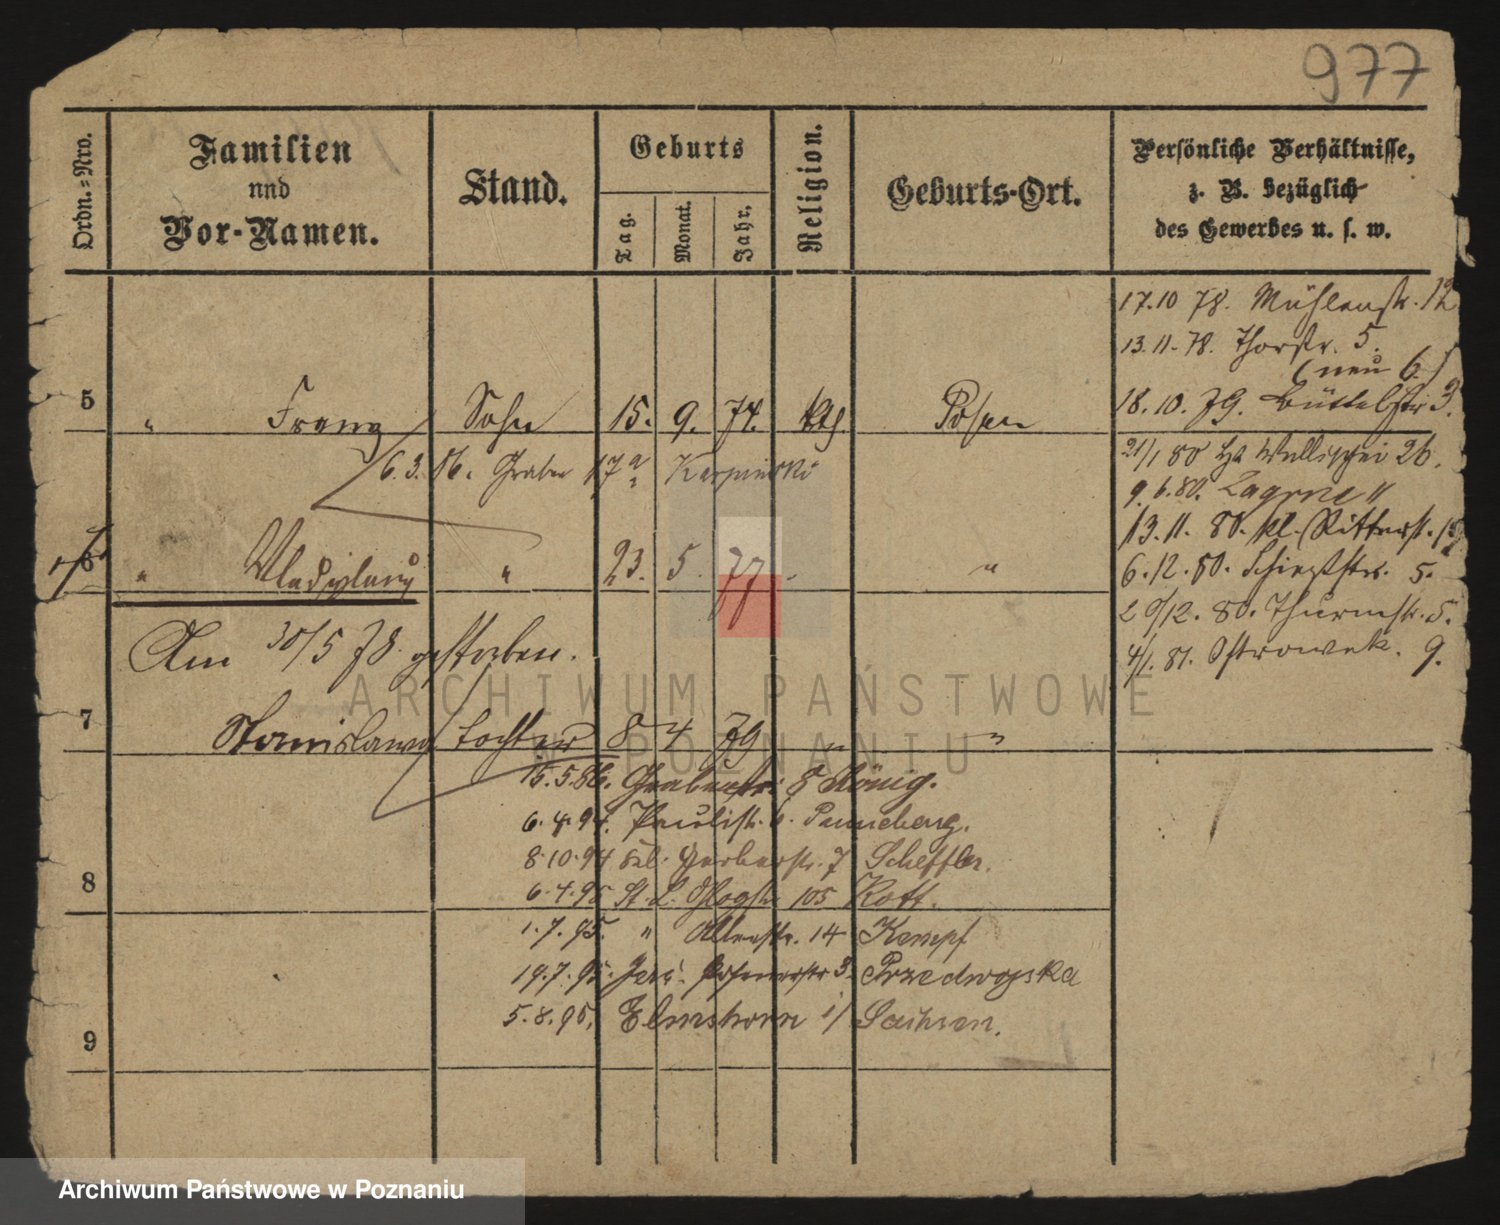 977
Ordn.=Nro.
Familien
und
Vor-Namen.
Stand.
Geburts
Tag.
Monat.
Jahr.
Religion.
Geburts-Ort.
Persönliche Verhältnisse,
z. B. bezüglich
des Gewerbes u. s. w.
17.10 78. Mühlenstr. 12
13.11.78. Thorstr. 5.
(neu 6.)
18.10.79. Büttelstr 3.
5 " Franz Sohn 15. 9. 74. kth. Posen
21/1 80 Wallischei 26.
6.3.86. Graben 17a Karpinski
9.6.80. "
13.11.80. kl. Ritterstr.
6 " Vladislaus " 23. 5. 77. - "
6.12.80. Schießstr. 5.
29/12.80. Thurmstr. 5.
Am 30/5 78. gestorben.
4/1.81. Ostrowek. 9.
7 Stanislawa Tochter 8 4 79 " "
15.5.86. Grabenstr. 8 König.
6.4.94. Paulistr. 6. Panneberg.
8.10.94 Gerberstr. 7 Scheffler.
8
6.4.95 St. L. Glogstr. 105 Kott.
1.7.95. " Allerstr. 14 Kempf
19.7.95. Jers. Posenerstr 3. Przedwojska
5.8.95. Elmshorn i/ Sachsen.
9
ARCHIWUM PAŃSTWOWE
W POZNANIU
Archiwum Państwowe w Poznaniu